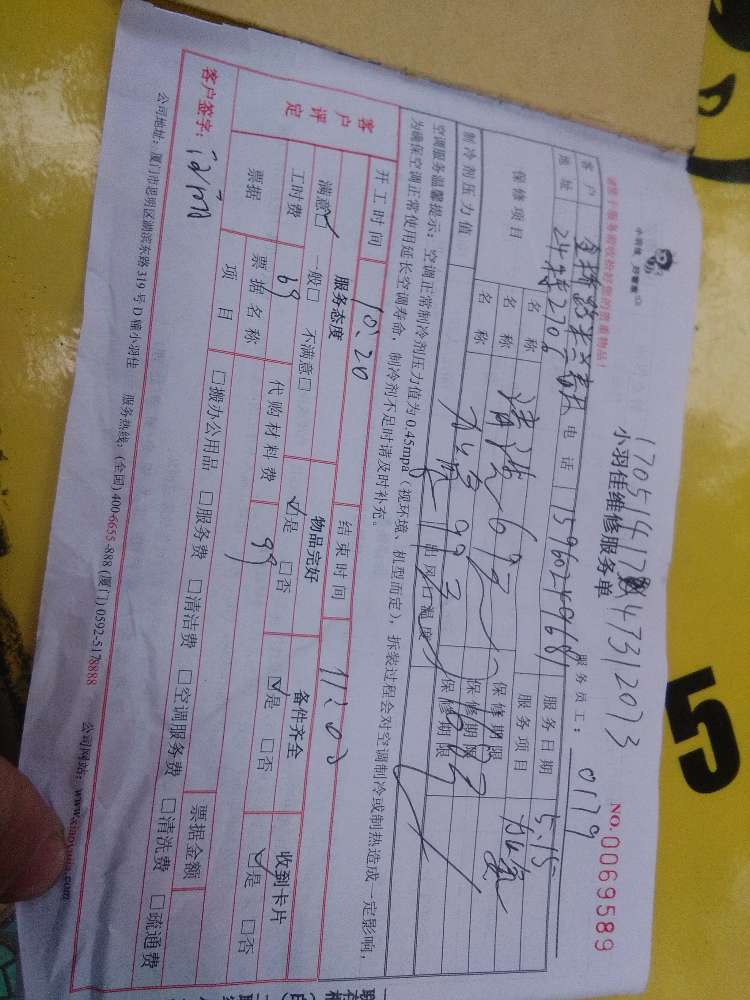 小羽佳 好管家
小羽佳维修服务单
NO.0069589
服务员工： 0179
客户
电话 15960249681
服务日期 5.15
地址 24栋270
保修项目
名称 清洗 69元
保修期限
服务项目 加氨
名称 加
保修期限
制冷剂压力值
出风口温度
保修期限
空调服务温馨提示：空调正常制冷剂压力值为0.45mpa（视环境、机型而定），拆装过程会对空调制冷或制热造成一定影响，
为确保空调正常使用延长空调寿命，制冷剂不足时请及时补充。
开工时间 10:20 结束时间 11:00
客户评定 服务态度 物品完好 备件齐全 收到卡片
满意☑ 一般□ 不满意□ ☑是 □否 ☑是 □否 ☑是 □否
工时费 69 代购材料费 99
票据 票据名称 票据金额
项目 □搬办公用品 □服务费 □清洁费 □空调服务费 □清洗费 □疏通费
客户签字：
公司地址：厦门市思明区湖滨东路319号D幢小羽佳 服务热线：(全国)400-6655-888 (厦门)0592-5178888 公司网站：